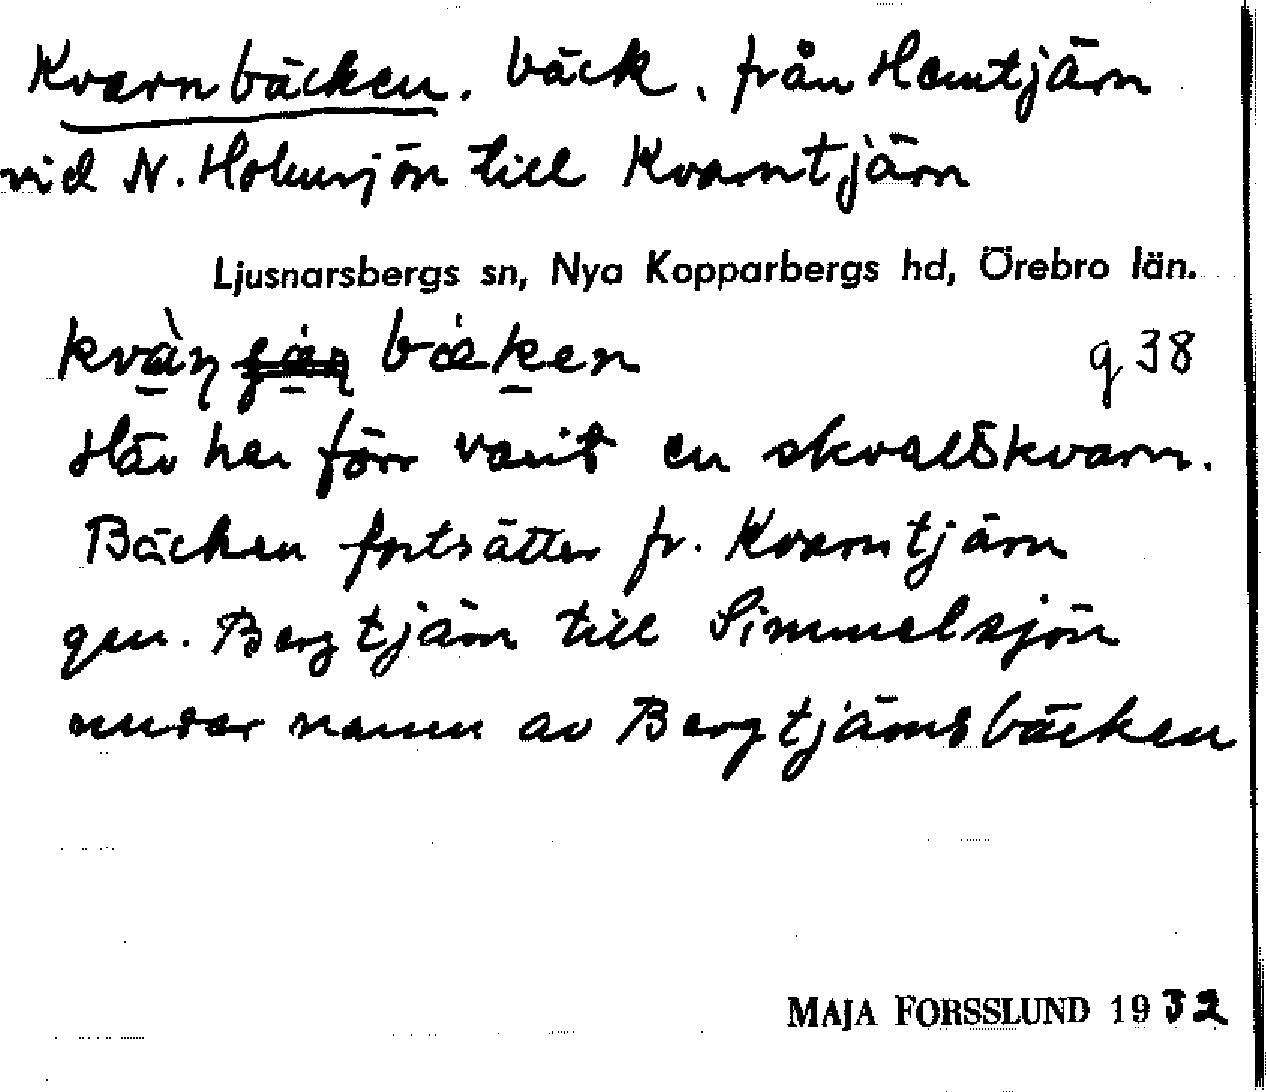 Kvarnbäcken. bäck, från Hemtjärn
vid N. Hokensjön till Kvarntjärn
Ljusnarsbergs sn, Nya Kopparbergs hd, Örebro län.
kvàɳ bæken g 38
Här har förr varit en skvaltkvarn.
Bäcken fortsätter fr. Kvarntjärn
gen. Bergtjärn till Simmelsjön
under namn av Bergtjärnsbäcken
MAJA FORSSLUND 1932